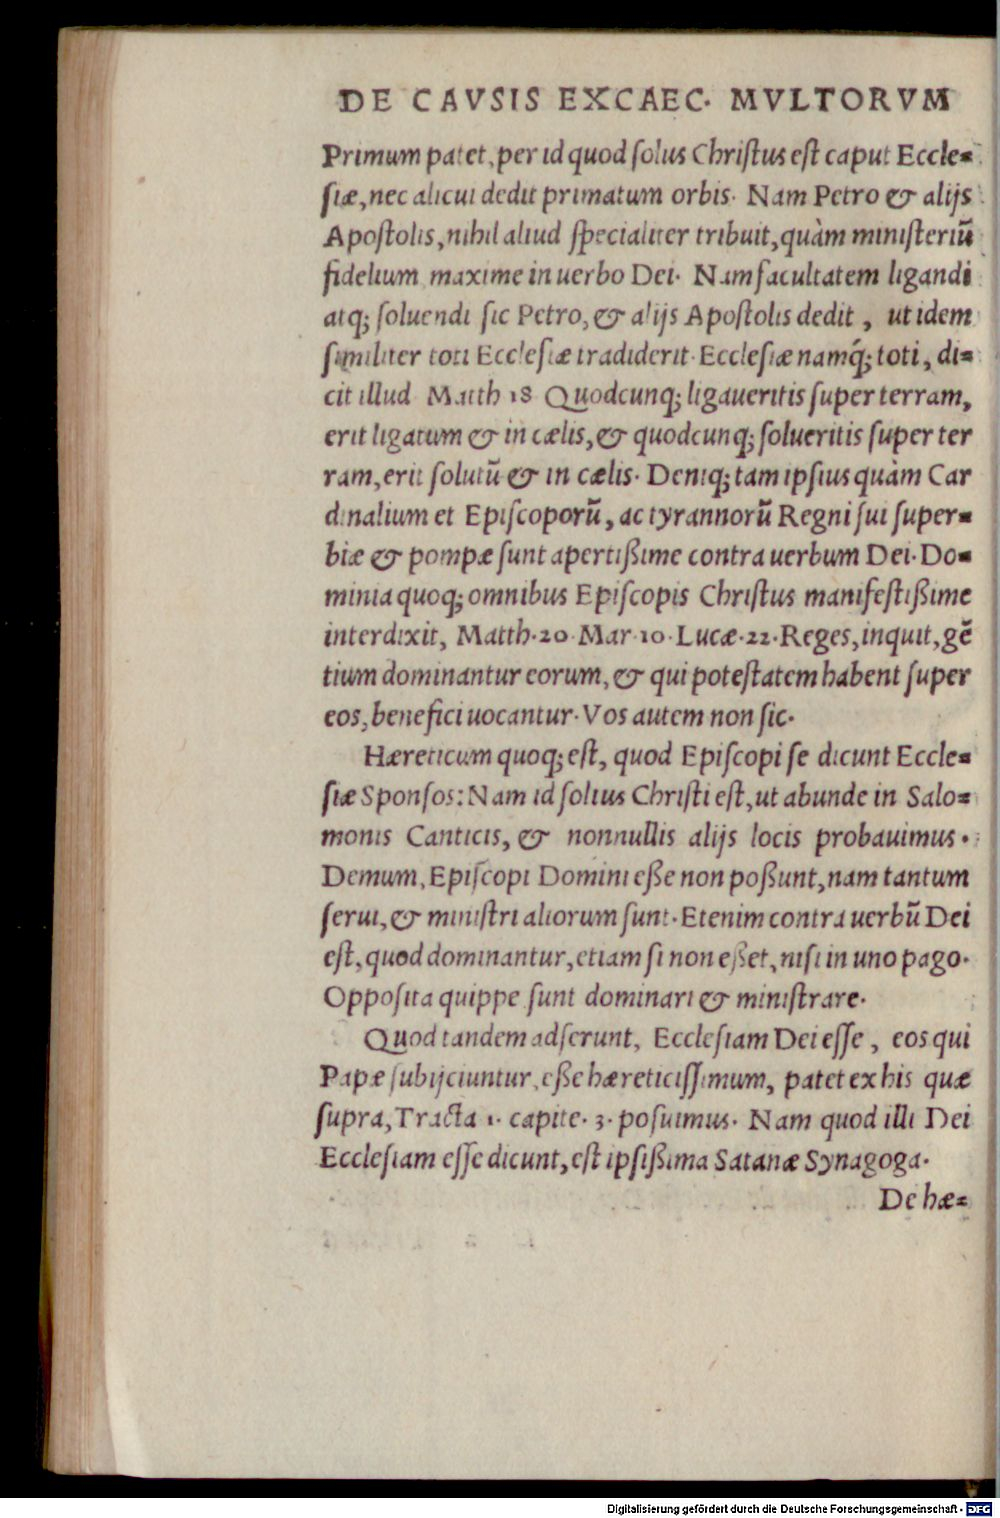 DE CAVSIS EXCAEC. MVLTORVM
Primum patet, per id quod ſolus Chriſtus eſt caput Eccle-
ſiæ, nec alicui dedit primatum orbis. Nam Petro & alijs
Apoſtolis, nihil aliud ſpecialiter tribuit, quàm miniſteriū
fidelium maxime in uerbo Dei. Nam facultatem ligandi
atq; ſoluendi ſic Petro, & alijs Apoſtolis dedit, ut idem
ſimiliter toti Eccleſiæ tradiderit. Eccleſiæ namq́; toti, di-
cit illud Matth 18 Quodcunq; ligaueritis ſuper terram,
erit ligatum & in cælis, & quodcunq; ſolueritis ſuper ter
ram, erit ſolutū & in cælis. Deniq; tam ipſius quàm Car
dinalium et Epiſcoporū, ac tyrannorū Regni ſui ſuper-
biæ & pompæ ſunt apertißime contra uerbum Dei. Do-
minia quoq; omnibus Epiſcopis Chriſtus manifeſtißime
interdixit, Matth. 20 Mar 10. Lucæ. 22. Reges, inquit, gē
tium dominantur eorum, & qui poteſtatem habent ſuper
eos, benefici uocantur. Vos autem non ſic.
Hæreticum quoq; eſt, quod Epiſcopi ſe dicunt Eccle-
ſiæ Sponſos: Nam id ſolius Chriſti eſt, ut abunde in Salo-
monis Canticis, & nonnullis alijs locis probauimus.
Demum, Epiſcopi Domini eße non poßunt, nam tantum
ſerui, & miniſtri aliorum ſunt. Etenim contra uerbū Dei
eſt, quod dominantur, etiam ſi non eßet, niſi in uno pago.
Oppoſita quippe ſunt dominari & miniſtrare.
Quod tandem adſerunt, Eccleſiam Dei eſſe, eos qui
Papæ ſubijciuntur, eße hæreticiſſimum, patet ex his quæ
ſupra, Tracta 1. capite. 3. poſuimus. Nam quod illi Dei
Eccleſiam eſſe dicunt, eſt ipſißima Satanæ Synagoga.
De hæ-
Digitalisierung gefördert durch die Deutsche Forschungsgemeinschaft - DFG